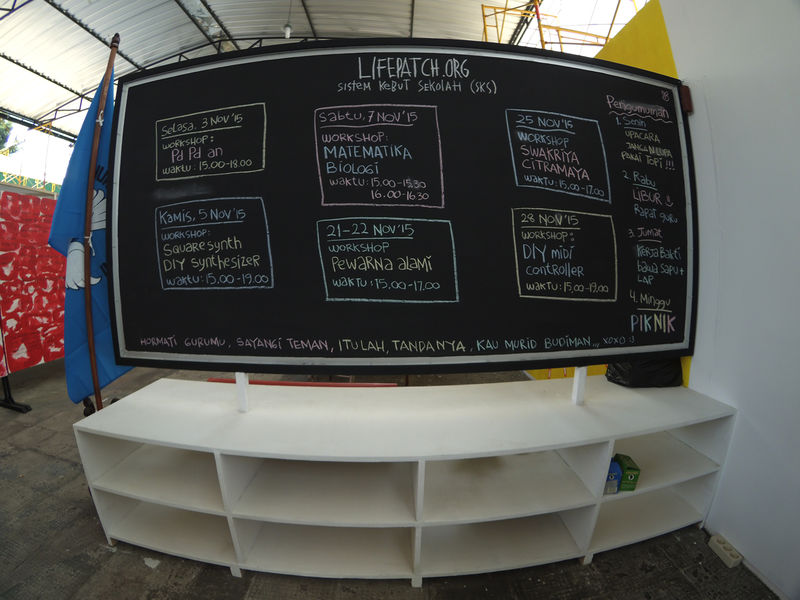 LIFEPATCH.ORG
SISTEM KEBUT SEKOLAH (SKS)
Selasa, 3 Nov '15
WORKSHOP:
Pd Pd an
waktu: 15.00-18.00
Sabtu, 7 Nov '15
WORKSHOP:
MATEMATIKA
BIOLOGI
waktu: 15.00-15.30
16.00-16.30
25 Nov '15
WORKSHOP
SWAKRIYA
CITRAMAYA
waktu: 15.00-17.00
Kamis, 5 Nov '15
WORKSHOP:
Squaresynth
DIY synthesizer
waktu: 15.00-19.00
21-22 Nov '15
WORKSHOP
Pewarna alami
waktu: 15.00-17.00
28 Nov '15
WORKSHOP:
DIY midi
controller
waktu: 15.00-19.00
Pengumuman
1. Senin
UPACARA
JANGAN LUPA
PAKAI TOPI !!!
2. Rabu
LIBUR
Rapat guru
3. Jumat
Kerja Bakti
bawa sapu +
LAP
4. Minggu
PIKNIK
HORMATI GURUMU, SAYANGI TEMAN, ITULAH, TANDANYA, KAU MURID BUDIMAN... XOXO :)